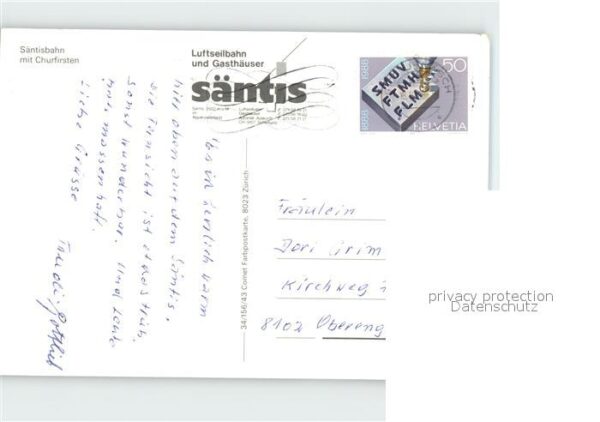 Säntisbahn
mit Churfirsten
Luftseilbahn
und Gasthäuser
säntis
1888 1988
50
SMUV
FTMH
FLM
HELVETIA
'S ist ziemlich warm
hier oben auf dem Säntis,
die Fernsicht ist etwas trüb,
sonst wunderbar. Und Leute
massenhaft.
Liebe Grüsse
Trudi, Gottlieb
34/156/43 Comet Farbpostkarte, 8023 Zürich
Fräulein
Dori Grim
Kirchweg
8102 Obereng
privacy protection
Datenschutz